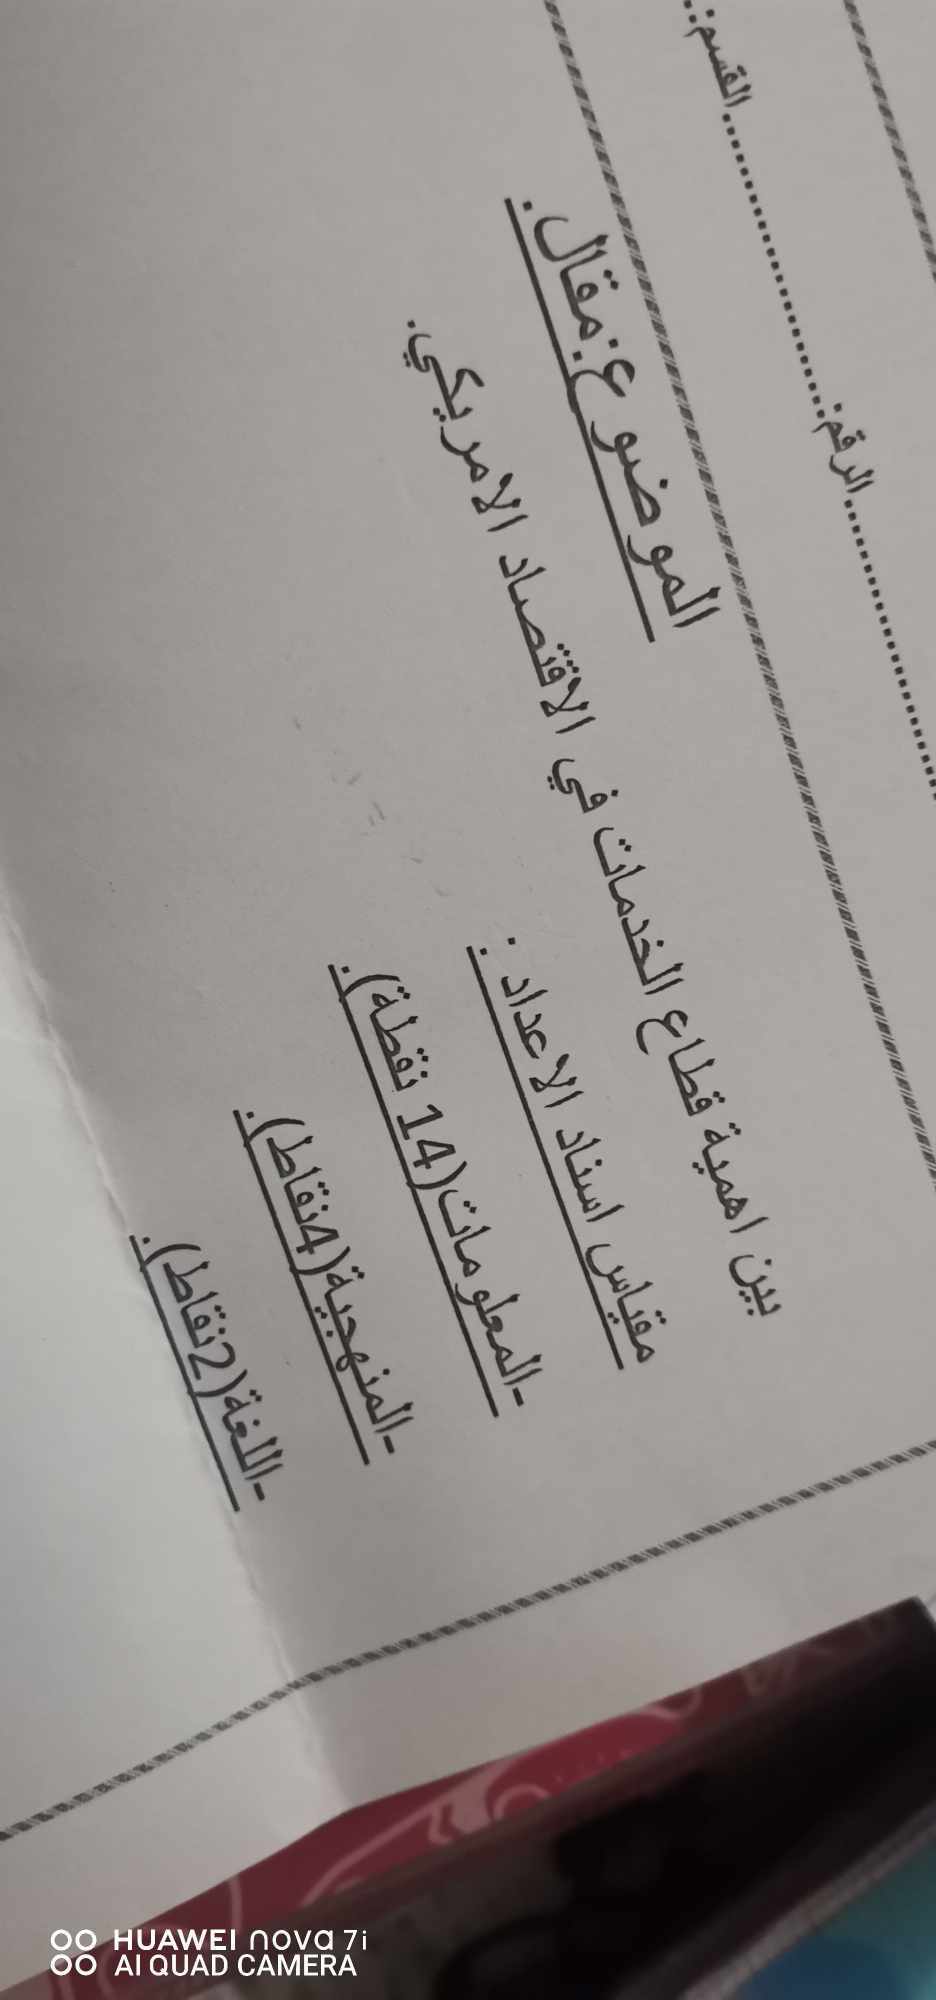 الرقم:..............القسم:..
الموضوع:مقال.
بين اهمية قطاع الخدمات في الاقتصاد الامريكي.
مقياس اسناد الاعداد :
-المعلومات(14 نقطة).
-المنهجية(4نقاط).
-اللغة(2نقاط).
HUAWEI nova 7i
AI QUAD CAMERA